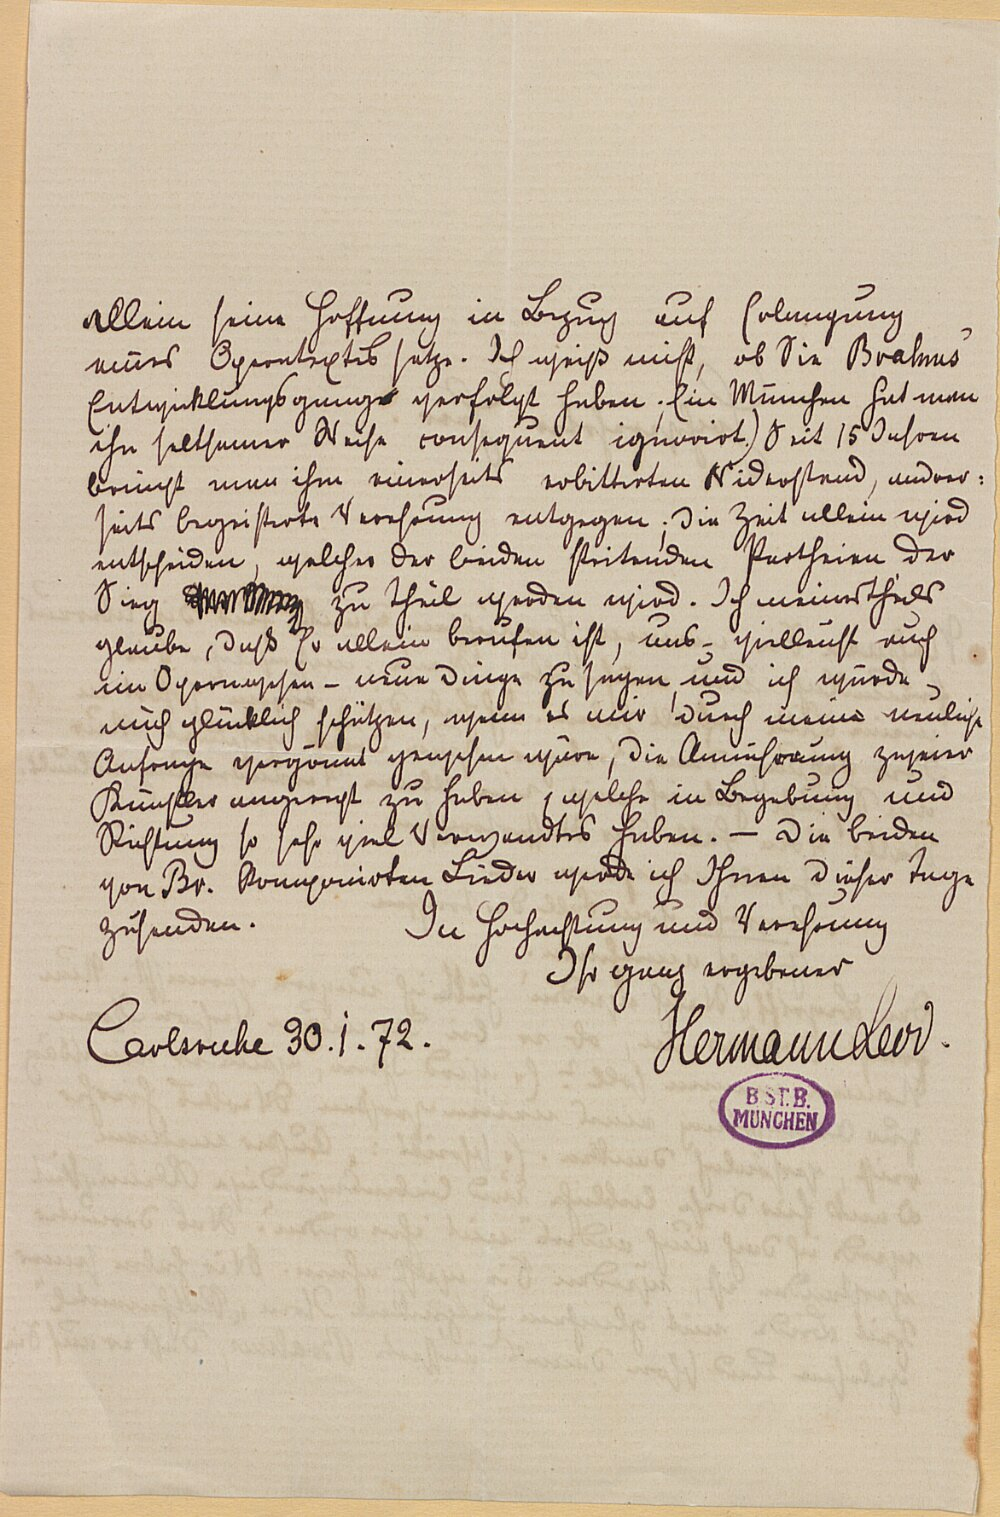 allein seine Hoffnung in Bezug auf Erlangung
eines Operntextes setze. Ich weiß nicht, ob Sie Brahms'
Entwicklungsgange verfolgt haben; (in München hat man
ihn seltsamer Weise consequent ignorirt.) Seit 15 Jahren
bringt man ihm einerseits erbitterten Widerstand, andrer-
seits begeisterte Verehrung entgegen; die Zeit allein wird
entscheiden, welcher der beiden streitenden Partheien der
Sieg zu Theil werden wird. Ich meinestheils
glaube, daß Er allein berufen ist, uns – vielleicht auch
im Opernwesen – neue Dinge zu sagen, und ich würde
mich glücklich schätzen, wenn es mir durch meine neuliche
Anfrage vergönnt gewesen wäre, die Annäherung zweier
Künstler angeregt zu haben, welche in Begabung und
Richtung so sehr viel Verwandtes haben. – Die beiden
von Br. komponirten Lieder werde ich Ihnen dieser Tage
zusenden. In Hochachtung und Verehrung
Ihr ganz ergebener
Carlsruhe 30.1.72. Hermann Levi.
B.ST.B.
MÜNCHEN